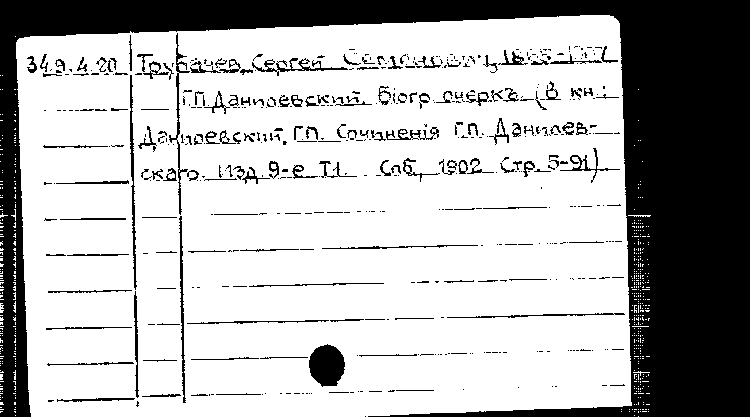 34 9.4.20 Трубачев, Сергей Семенович, 1865-1907
Г.П.Данилевский. Біогр очеркъ. (В кн:
Данилевский, Г.П. Сочиненія Г.П. Данилев-
скаго. Изд 9-е Т1. Спб, 1902 Стр. 5-91)